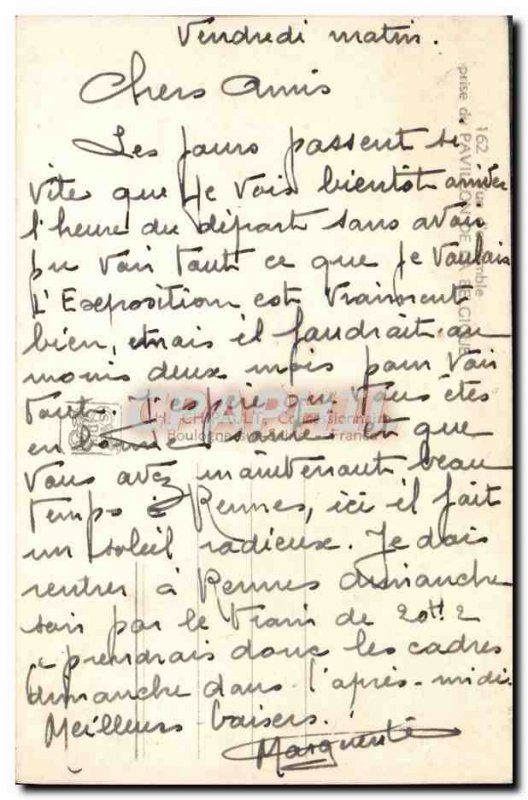 Vendredi matin.
Chers Amis
Les jours passent si
vite que je vois bientôt arriver
l'heure du départ sans avoir
pu voir tout ce que je voulais
L'Exposition est vraiment
bien, mais il faudrait au
moins deux mois pour voir
tout. J'espère que vous êtes
en bonne santé et que
vous avez maintenant beau
temps à Rennes, ici il fait
un soleil radieux. Je dois
rentrer à Rennes dimanche
soir par le train de 20H 2
prendrais donc les cadres
dimanche dans l'après-midi
Meilleurs baisers.
Marguerite
162
prise du PAVILLON DE LA BELGIQUE
H. CHIPAULT, Concessionnaire
Boulogne-sur-Seine France